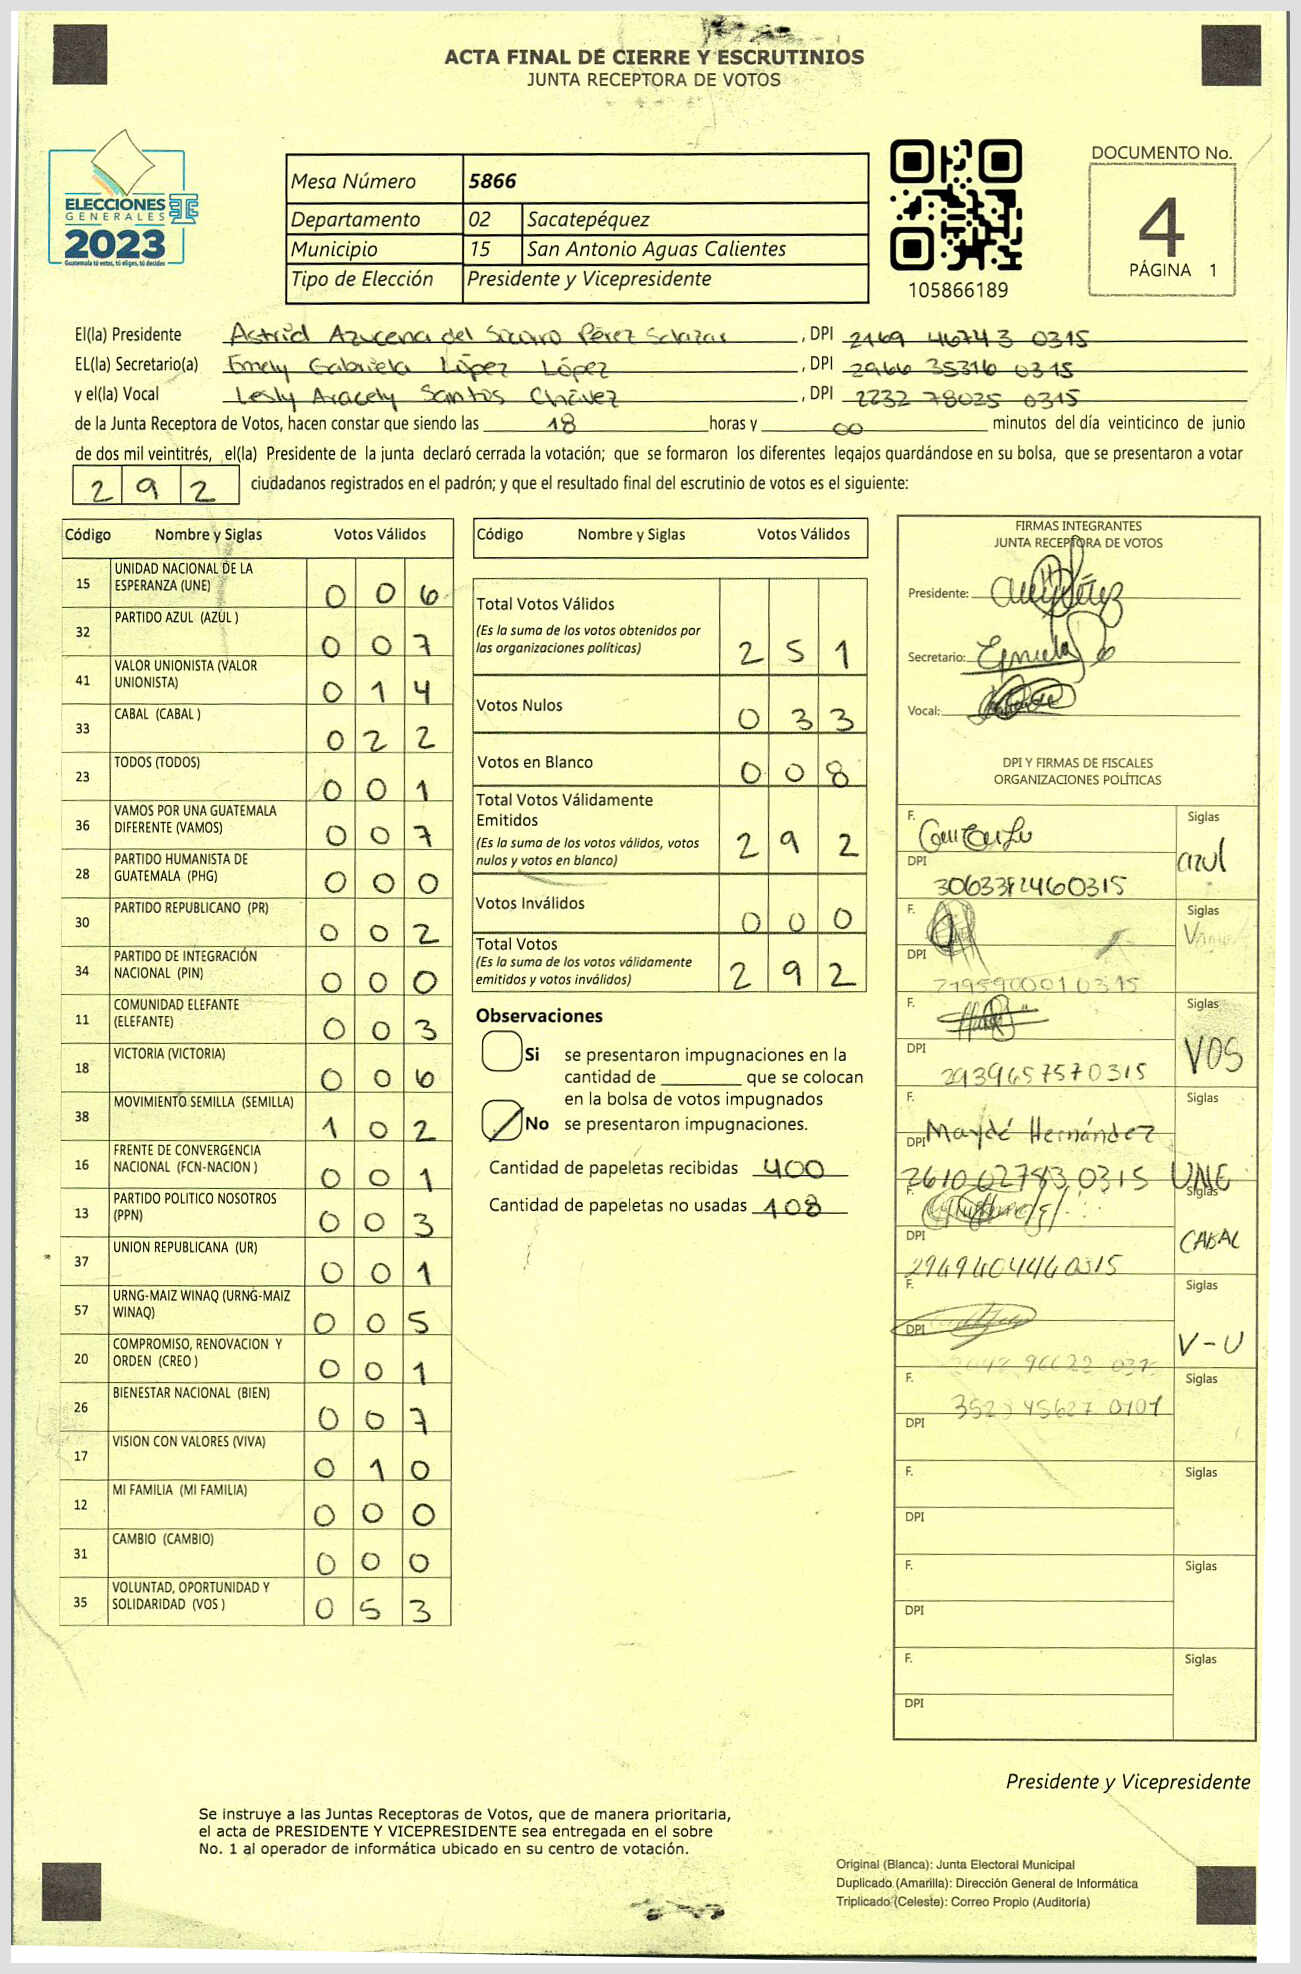 ACTA FINAL DE CIERRE Y ESCRUTINIOS
JUNTA RECEPTORA DE VOTOS
ELECCIONES
GENERALES
2023
Guatemala tú votas, tú eliges, tú decides
Mesa Número 5866
Departamento 02 Sacatepéquez
Municipio 15 San Antonio Aguas Calientes
Tipo de Elección Presidente y Vicepresidente
105866189
DOCUMENTO No.
4
PÁGINA 1
El(la) Presidente Astrid Azucena del Socorro Pérez Salazar, DPI 2169 46743 0315
EL(la) Secretario(a) Emely Gabriela López López, DPI 2966 35316 0315
y el(la) Vocal Lesly Aracely Santos Chávez, DPI 2232 78025 0315
de la Junta Receptora de Votos, hacen constar que siendo las 18 horas y 00 minutos del día veinticinco de junio
de dos mil veintitrés, el(la) Presidente de la junta declaró cerrada la votación; que se formaron los diferentes legajos guardándose en su bolsa, que se presentaron a votar
292 ciudadanos registrados en el padrón; y que el resultado final del escrutinio de votos es el siguiente:
Código Nombre y Siglas Votos Válidos
15 UNIDAD NACIONAL DE LA ESPERANZA (UNE) 006
32 PARTIDO AZUL (AZUL ) 007
41 VALOR UNIONISTA (VALOR UNIONISTA) 014
33 CABAL (CABAL ) 022
23 TODOS (TODOS) 001
36 VAMOS POR UNA GUATEMALA DIFERENTE (VAMOS) 007
28 PARTIDO HUMANISTA DE GUATEMALA (PHG) 000
30 PARTIDO REPUBLICANO (PR) 002
34 PARTIDO DE INTEGRACIÓN NACIONAL (PIN) 000
11 COMUNIDAD ELEFANTE (ELEFANTE) 003
18 VICTORIA (VICTORIA) 006
38 MOVIMIENTO SEMILLA (SEMILLA) 102
16 FRENTE DE CONVERGENCIA NACIONAL (FCN-NACION ) 001
13 PARTIDO POLITICO NOSOTROS (PPN) 003
37 UNION REPUBLICANA (UR) 001
57 URNG-MAIZ WINAQ (URNG-MAIZ WINAQ) 005
20 COMPROMISO, RENOVACION Y ORDEN (CREO ) 001
26 BIENESTAR NACIONAL (BIEN) 007
17 VISION CON VALORES (VIVA) 010
12 MI FAMILIA (MI FAMILIA) 000
31 CAMBIO (CAMBIO) 000
35 VOLUNTAD, OPORTUNIDAD Y SOLIDARIDAD (VOS ) 053
Código Nombre y Siglas Votos Válidos
Total Votos Válidos 251
(Es la suma de los votos obtenidos por
las organizaciones políticas)
Votos Nulos 033
Votos en Blanco 008
Total Votos Válidamente
Emitidos 292
(Es la suma de los votos válidos, votos
nulos y votos en blanco)
Votos Inválidos 000
Total Votos 292
(Es la suma de los votos válidamente
emitidos y votos inválidos)
Observaciones
Si se presentaron impugnaciones en la
cantidad de ________ que se colocan
en la bolsa de votos impugnados
No se presentaron impugnaciones.
Cantidad de papeletas recibidas 400
Cantidad de papeletas no usadas 108
FIRMAS INTEGRANTES
JUNTA RECEPTORA DE VOTOS
Presidente:
Secretario:
Vocal:
DPI Y FIRMAS DE FISCALES
ORGANIZACIONES POLÍTICAS
F. Siglas azul
DPI
F. Siglas
DPI
F. Siglas VOS
DPI 2939657570315
F. Siglas UNE
DPI Maydé Hernández
2610 02783 0315
F. Siglas CABAL
DPI 2969404460315
F. Siglas V-U
DPI
F. Siglas
DPI
F. Siglas
DPI
F. Siglas
DPI
F. Siglas
DPI
Presidente y Vicepresidente
Se instruye a las Juntas Receptoras de Votos, que de manera prioritaria,
el acta de PRESIDENTE Y VICEPRESIDENTE sea entregada en el sobre
No. 1 al operador de informática ubicado en su centro de votación.
Original (Blanca): Junta Electoral Municipal
Duplicado (Amarilla): Dirección General de Informática
Triplicado (Celeste): Correo Propio (Auditoría)